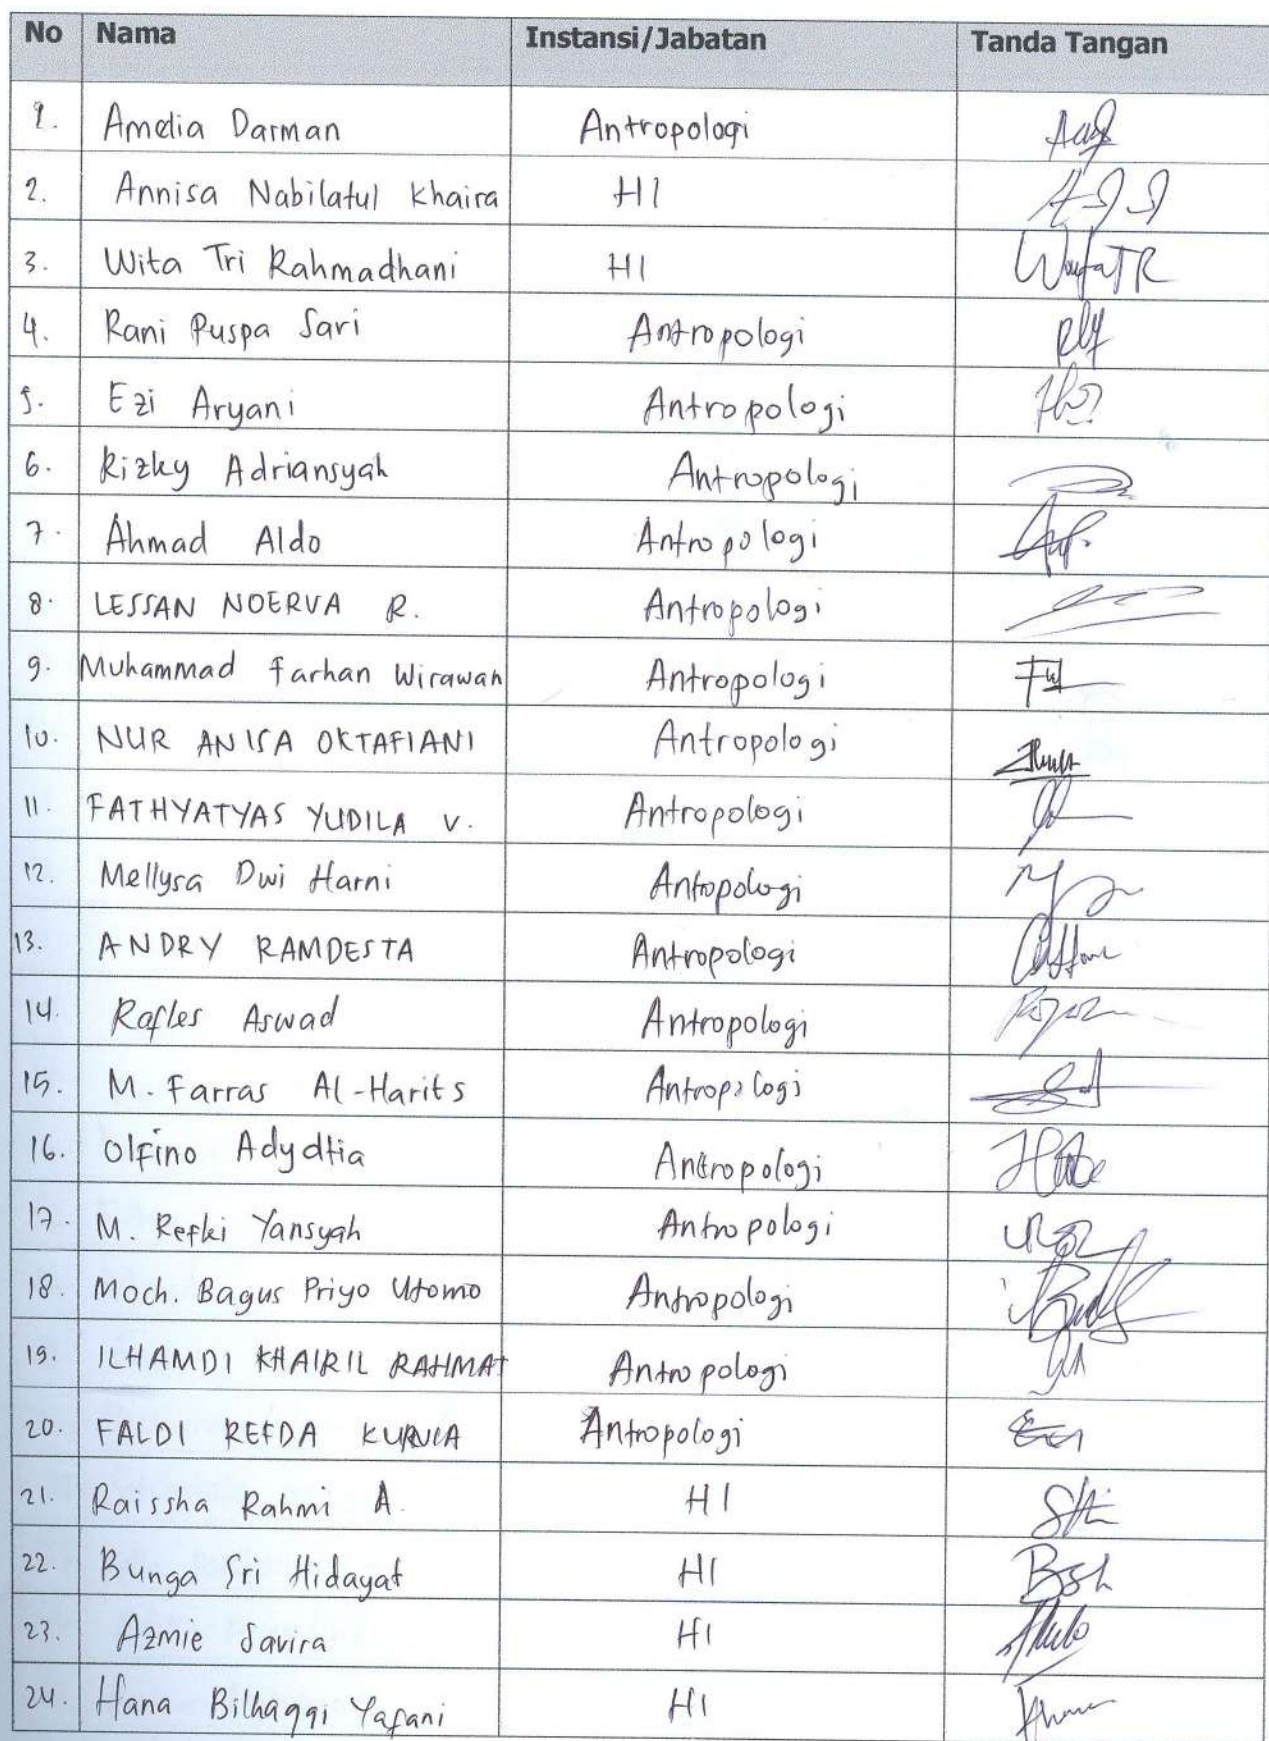 No Nama Instansi/Jabatan Tanda Tangan
1. Amelia Darman Antropologi
2. Annisa Nabilatul Khaira HI
3. Wita Tri Rahmadhani HI
4. Rani Puspa Sari Antropologi
5. Ezi Aryani Antropologi
6. Rizky Adriansyah Antropologi
7. Ahmad Aldo Antropologi
8. LESSAN NOERVA R. Antropologi
9. Muhammad Farhan Wirawan Antropologi
10. NUR ANISA OKTAFIANI Antropologi
11. FATHYATYAS YUDILA V. Antropologi
12. Mellysa Dwi Harni Antropologi
13. ANDRY RAMDESTA Antropologi
14. Rafles Aswad Antropologi
15. M. Farras Al-Harits Antropologi
16. Olfino Adydtia Antropologi
17. M. Refki Yansyah Antropologi
18. Moch. Bagus Priyo Utomo Antropologi
19. ILHAMDI KHAIRIL RAHMAT Antropologi
20. FALDI REFDA KURNIA Antropologi
21. Raissha Rahmi A. HI
22. Bunga Sri Hidayat HI BSh
23. Azmie Savira HI
24. Hana Bilhaqqi Yafani HI